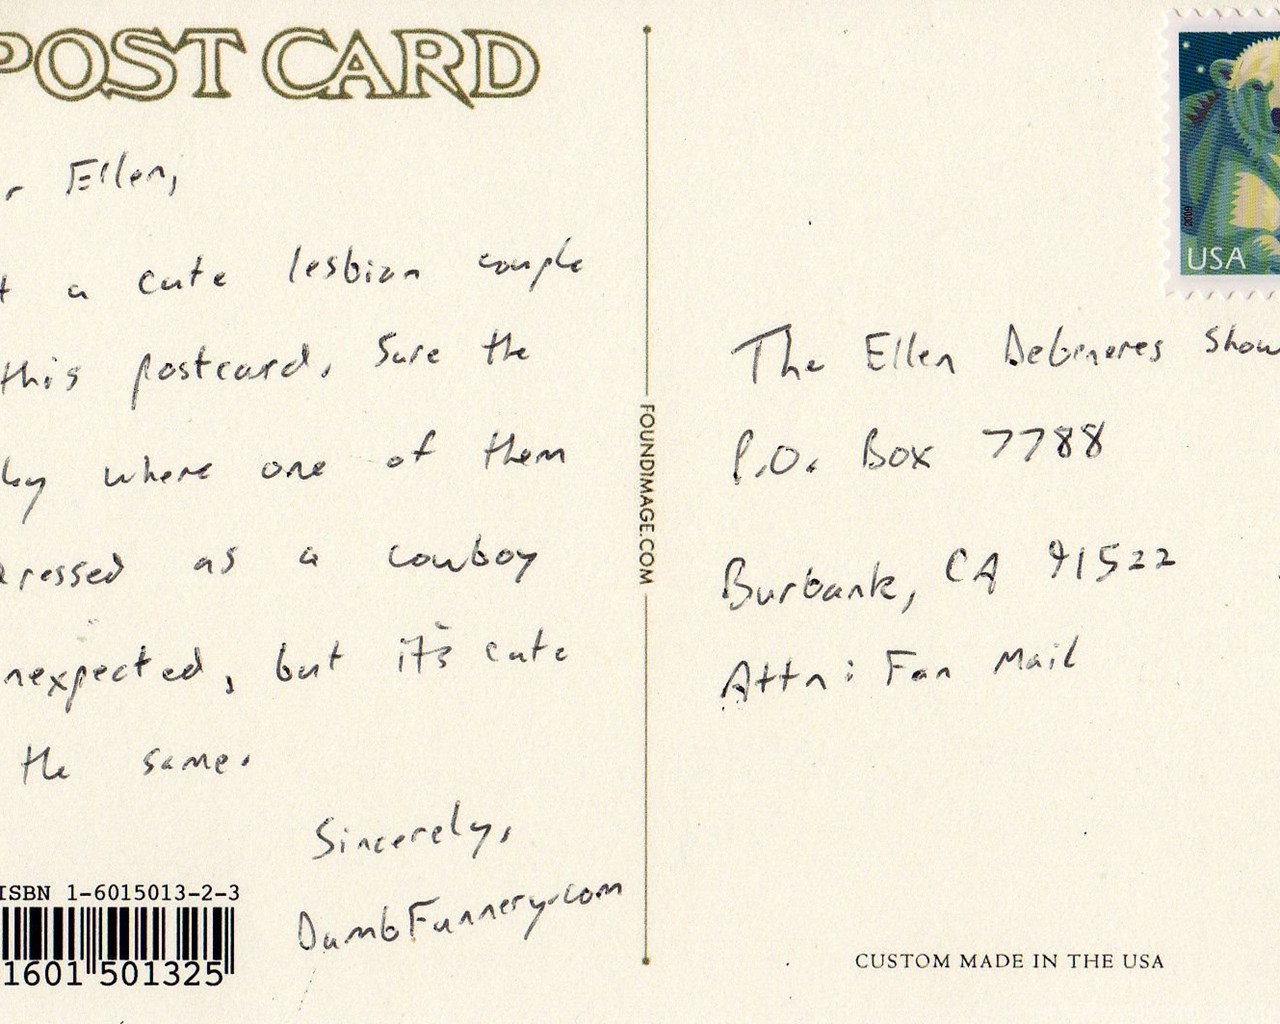 POST CARD
r Ellen,
t a cute lesbian couple
this postcard. Sure the
by where one of them
dressed as a cowboy
nexpected, but it's cute
the same.
Sincerely,
DumbFunnery.com
ISBN 1-6015013-2-3
1601 501325
FOUNDIMAGE.COM
2009
USA
The Ellen DeGeneres Show
P.O. Box 7788
Burbank, CA 91522
Attn: Fan Mail
CUSTOM MADE IN THE USA